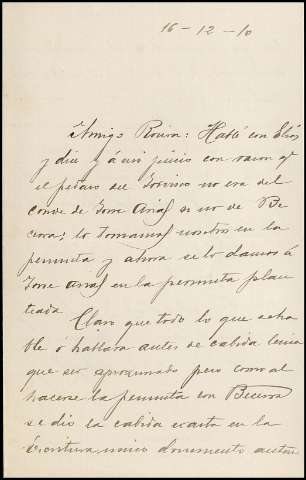 16-12-10
Amigo Rovira: Hablé con Elías
y dice y á mi juicio con razon q.
el pedazo del no era del
conde de Torre Arias si no de Be
cerra; lo tomamos nosotros en la
permuta y ahora se lo damos á
Torre Arias en la permuta plan
teada
Claro que todo lo que se ha
ble ó hablara antes de cabida tenia
que ser aproximado pero como al
hacerse la permuta con Becerra
se dio la cabida exacta en la
escritura unico documento auten